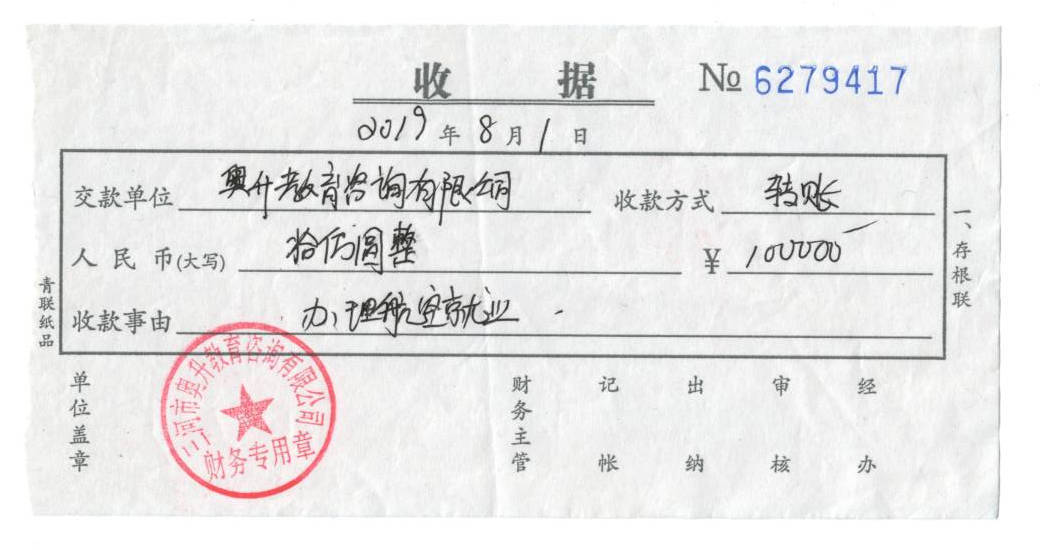 收 据 № 6279417
2019 年 8 月 1 日
交款单位 奥升教育咨询有限公司 收款方式 转账
人民币(大写) 拾万圆整 ¥ 100000
收款事由 办理航空就业
一、存根联
青联纸品
单位盖章 财务主管 记帐 出纳 审核 经办
三河市奥升教育咨询有限公司
财务专用章